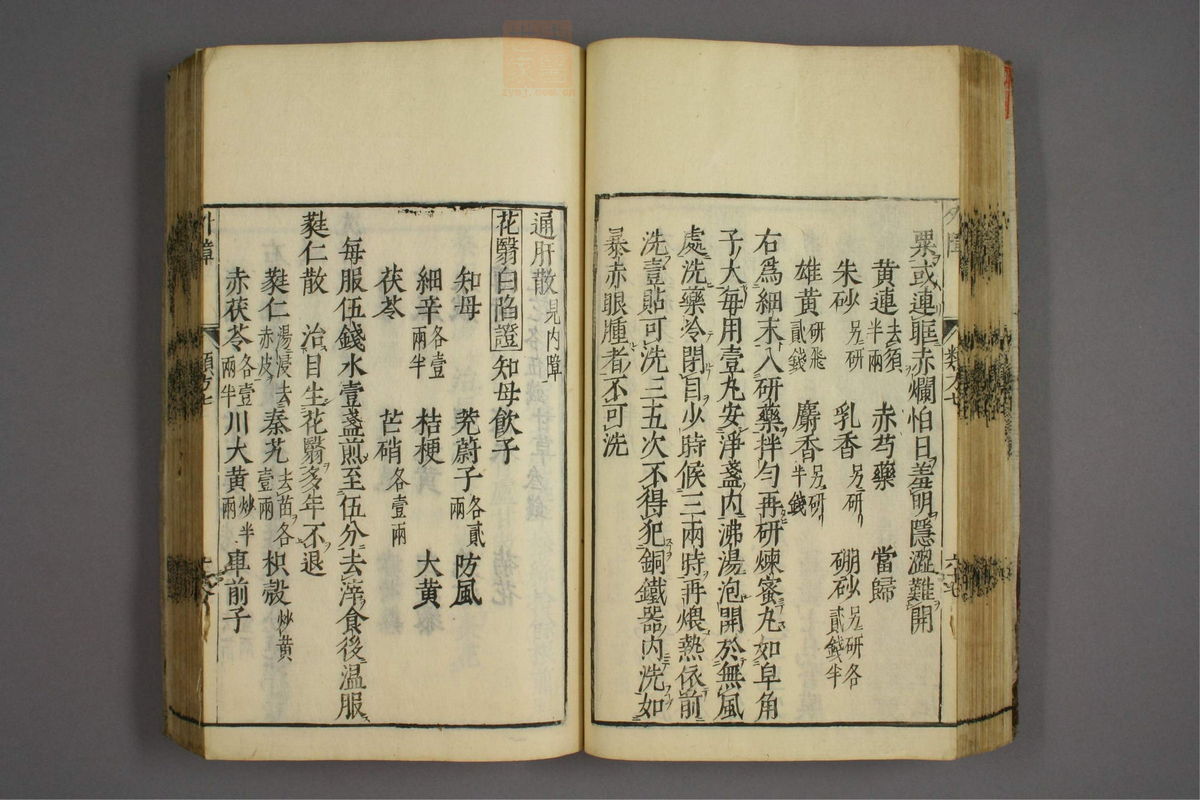 粟或連眶赤爛怕日羞明隱澀難開
黃連去須半兩 赤芍藥 當歸
朱砂另研 乳香另研 硼砂另研各貳錢半
雄黃研飛貳錢 麝香另研半錢
右爲細末入研藥拌勻再研煉蜜丸如皁角
子大每用壹丸安淨盞內沸湯泡開於無風
處洗藥冷閉目少時候三兩時再煨熱依前
洗壹貼可洗三五次不得犯銅鐵器內洗如
暴赤眼腫者不可洗
通肝散見內障
花翳白陷證 知母飲子
知母 茺蔚子各貳兩 防風
細辛各壹兩半 桔梗 大黃
茯苓 芒硝各壹兩
每服伍錢水壹盞煎至伍分去滓食後温服
蕤仁散 治目生花翳多年不退
蕤仁湯浸去赤皮 秦艽去苗各壹兩 枳殼炒黃
赤茯苓各壹兩半 川大黃炒半兩 車前子
外障
類方七